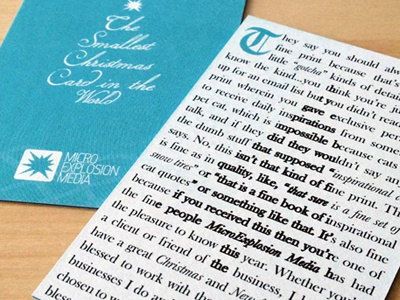 The
Smallest
Christmas
Card in the
World
MICRO
EXPLOSION
MEDIA
They say you should alwa
fine print because that's
little "gotcha" kinds of detail
know the kind...you think you're
up for an email list but you didn't read
print wherein you gave exclusive per
to receive daily inspirations from some
pet cat, which is impossible because cats
the dumb stuff did they wouldn't say any
says. No, this that supposed "inspirational c
is fine as in isn't that kind of fine print. The
mous tires" or quality, like, "that sure is a fine set of
cat quotes," or "that is a fine book of inspirational
because if you received this then you're one of
the fine people MicroExplosion Media has had
the pleasure to know this year. Whether you'
a client or friend of the business, I ho
have a great Christmas and New
blessed to work with the
businesses I do an
chosen to w